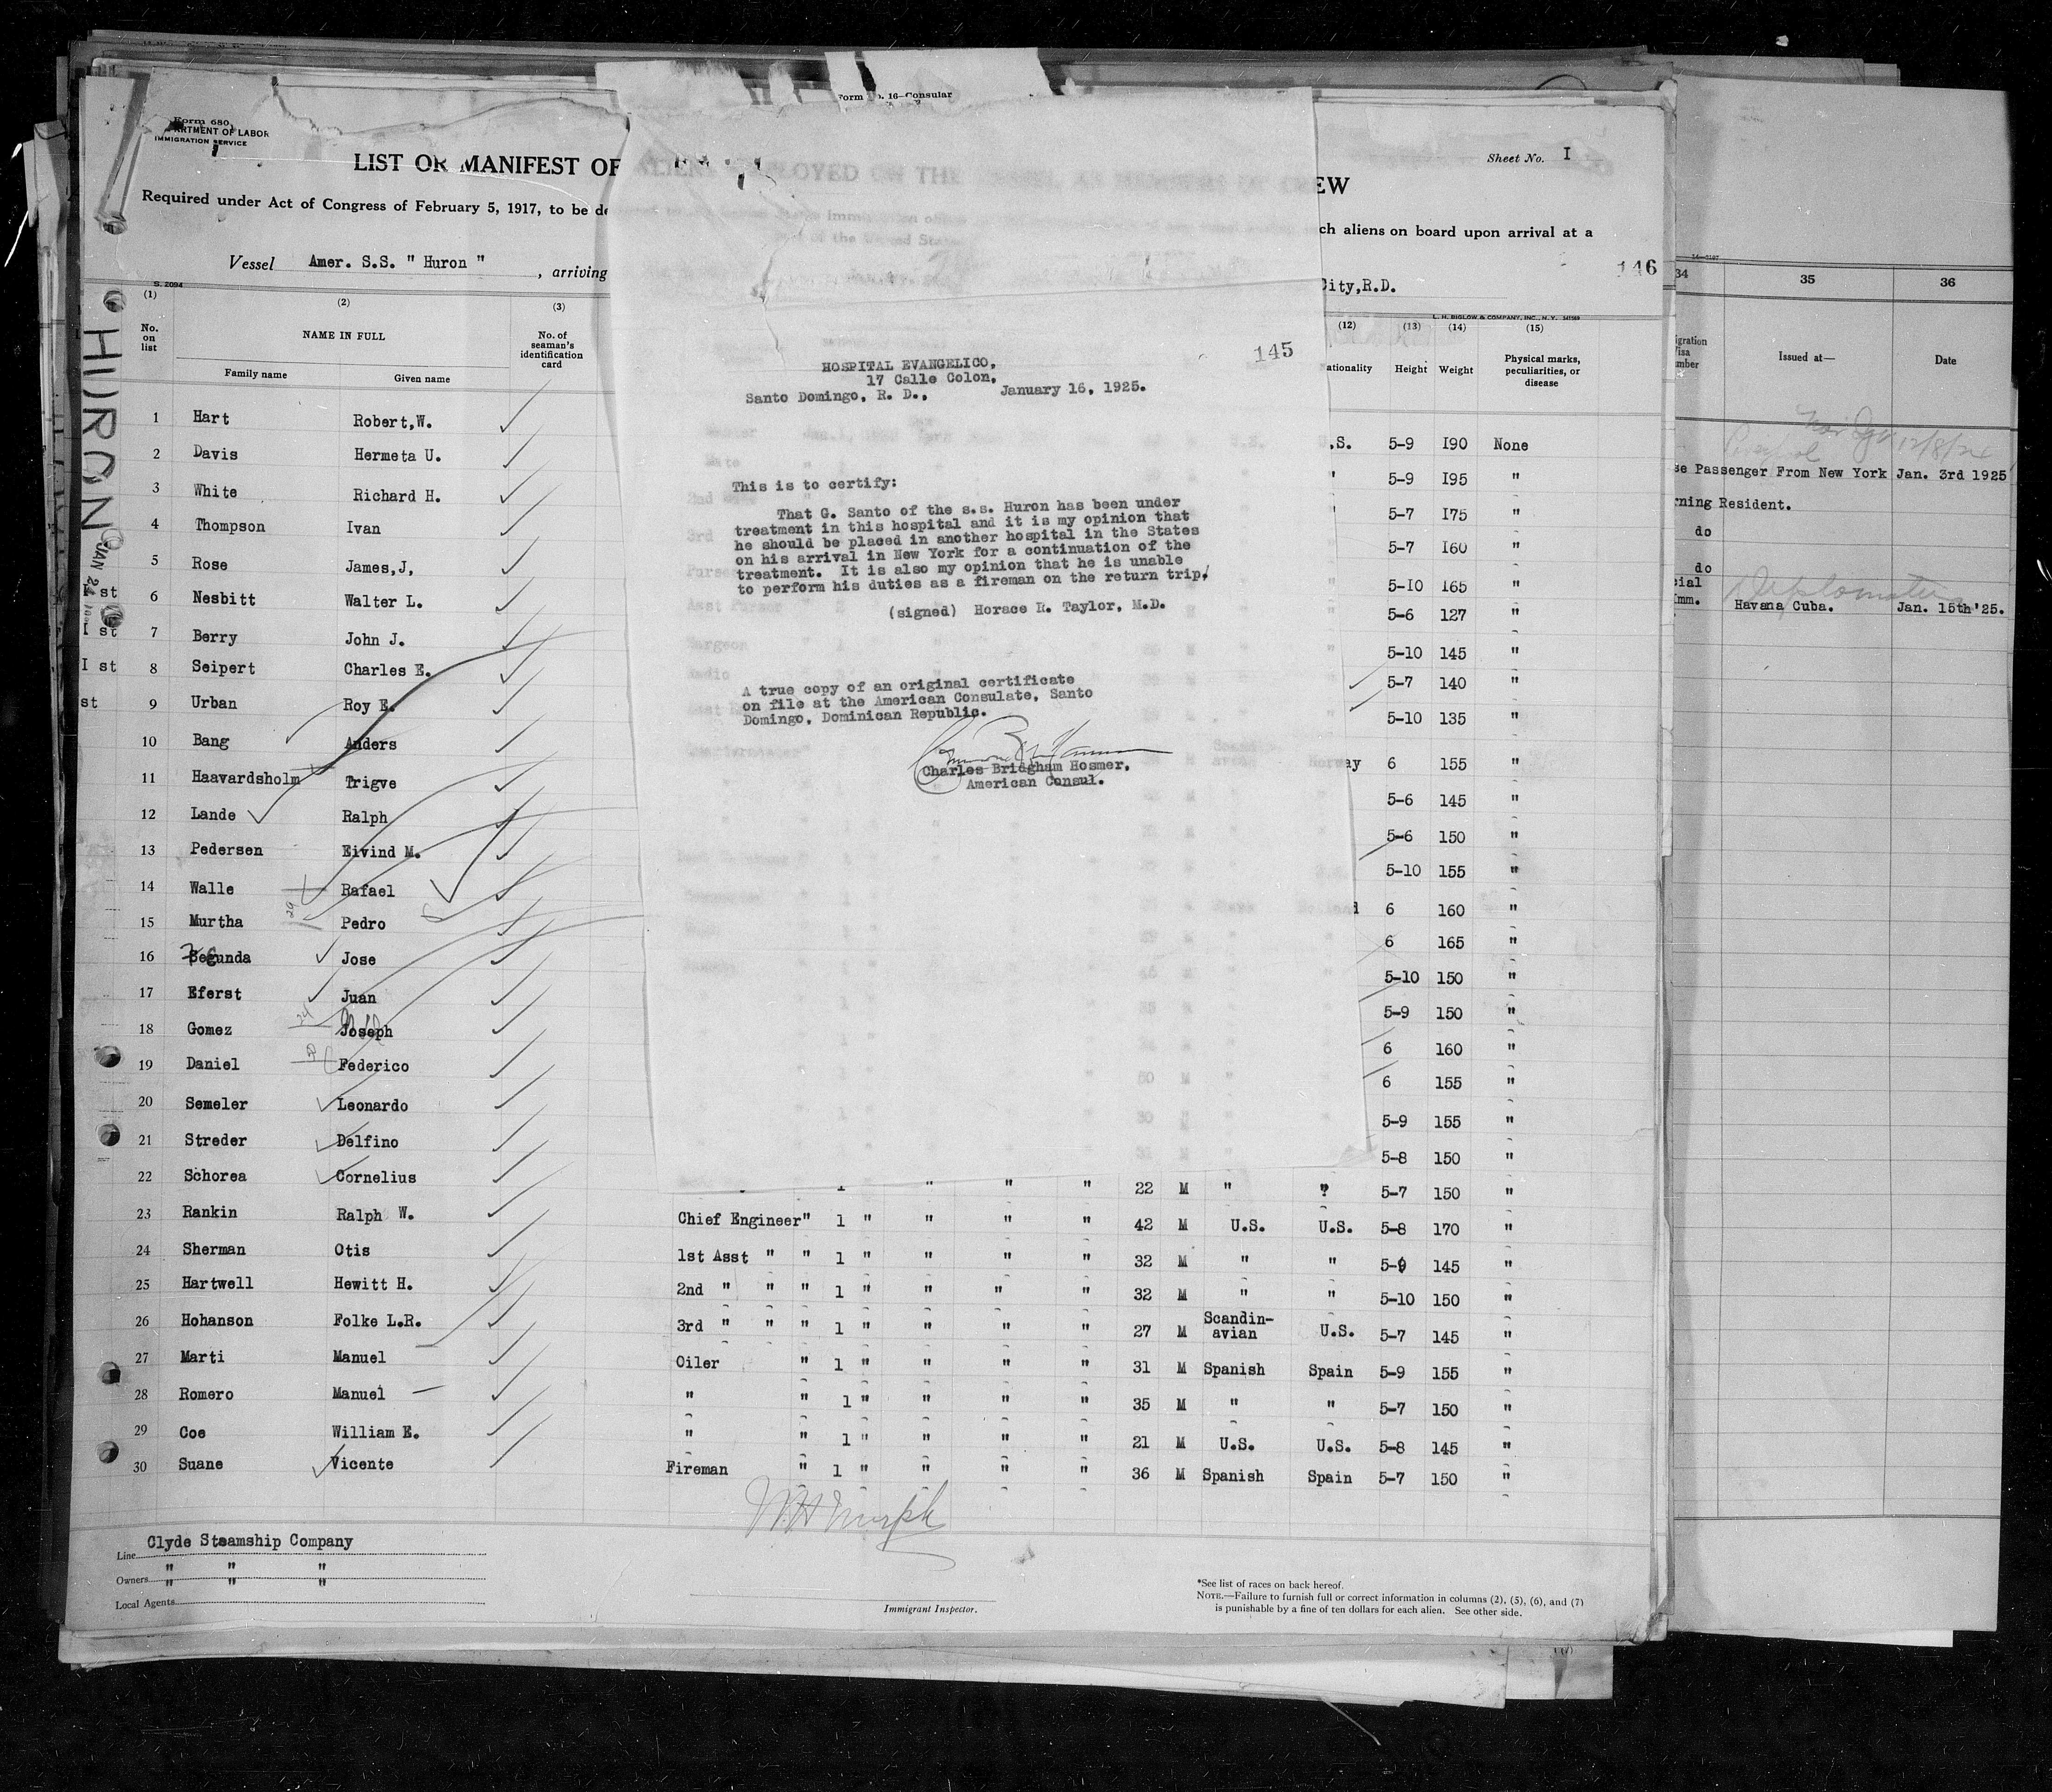 Form No. 16—Consular
Form 680
DEPARTMENT OF LABOR
IMMIGRATION SERVICE
Sheet No. I
LIST OR MANIFEST OF
EW
Required under Act of Congress of February 5, 1917, to be de
ch aliens on board upon arrival at a
Vessel Amer. S.S. " Huron " , arriving
City, R.D.
146
S. 2094
L. H. BIGLOW & COMPANY, INC., N. Y.
HURON
JAN 24
(1) (2) (3) (12) (13) (14) (15)
No. on list
NAME IN FULL
Family name Given name
No. of seaman's identification card
ationality Height Weight
Physical marks, peculiarities, or disease
1 Hart Robert,W. .S. 5-9 I90 None
2 Davis Hermeta U. ' 5-9 I95 "
3 White Richard H. ' 5-7 I75 "
4 Thompson Ivan 5-7 I60 "
5 Rose James,J, 5-IO 165 "
I st 6 Nesbitt Walter L. 5-6 127 "
I st 7 Berry John J. 5-10 145 "
I st 8 Seipert Charles E. 5-7 140 "
st 9 Urban Roy E. 5-10 135 "
10 Bang Anders ay 6 155 "
11 Haavardsholm Trigve 5-6 145 "
12 Lande Ralph 5-6 150 "
13 Pedersen Eivind M. 5-10 155 "
14 Walle Rafael d 6 160 "
15 Murtha Pedro 6 165 "
16 Segunda Jose 5-10 150 "
17 Eferst Juan 5-9 150 "
18 Gomez Joseph 6 160 "
19 Daniel Federico 6 155 "
20 Semeler Leonardo 5-9 155 "
21 Streder Delfino 5-8 150 "
22 Schorea Cornelius 1 " " " 22 M " " 5-7 150 "
23 Rankin Ralph W. Chief Engineer" 1 " " " " 42 M U.S. U.S. 5-8 170 "
24 Sherman Otis 1st Asst " " 1 " " " " 32 M " " 5-9 145 "
25 Hartwell Hewitt H. 2nd " " " 1 " " " " 32 M " " 5-10 150 "
26 Hohanson Folke L.R. 3rd " " " 1 " " " " 27 M Scandin-avian U.S. 5-7 145 "
27 Marti Manuel Oiler " 1 " " " " 31 M Spanish Spain 5-9 155 "
28 Romero Manuel " " 1 " " " " 35 M " " 5-7 150 "
29 Coe William E. " " 1 " " " " 21 M U.S. U.S. 5-8 145 "
30 Suane Vicente Fireman " 1 " " " " 36 M Spanish Spain 5-7 150 "
Line Clyde Steamship Company
Owners " " "
Local Agents " " "
Immigrant Inspector.
*See list of races on back hereof.
NOTE.—Failure to furnish full or correct information in columns (2), (5), (6), and (7)
is punishable by a fine of ten dollars for each alien. See other side.
145
HOSPITAL EVANGELICO,
17 Calle Colon,
Santo Domingo, R. D., January 16, 1925.
This is to certify:
That G. Santo of the s.s. Huron has been under
treatment in this hospital and it is my opinion that
he should be placed in another hospital in the States
on his arrival in New York for a continuation of the
treatment. It is also my opinion that he is unable
to perform his duties as a fireman on the return trip.
(signed) Horace R. Taylor, M.D.
A true copy of an original certificate
on file at the American Consulate, Santo
Domingo, Dominican Republic.
Charles Bridgham Hosmer,
American Consul.
34 35 36
igration
isa
mber
Issued at— Date
12/8/24
se Passenger From New York Jan. 3rd 1925
rning Resident.
do
do
cial
Imm. Havana Cuba. Jan. 15th'25.